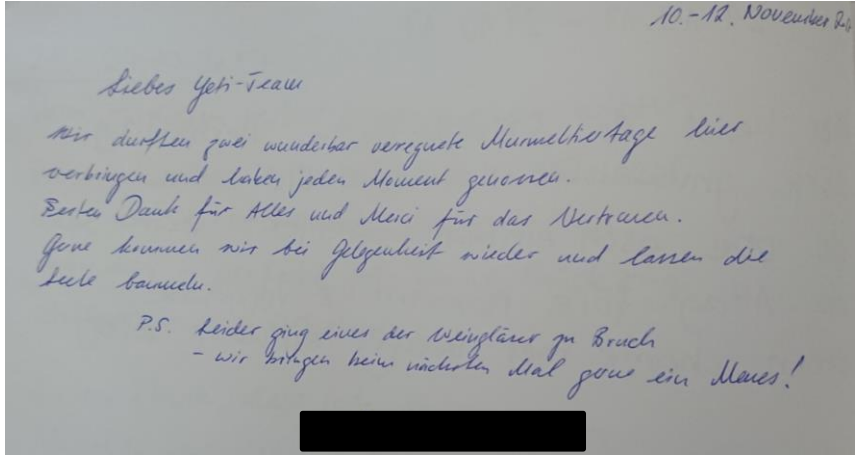 10.-12. November
Liebes Yeti-Team
Wir durften zwei wunderbar verregnete Murmeltiertage hier
verbringen und haben jeden Moment genossen.
Besten Dank für Alles und Merci für das Vertrauen.
Gerne kommen wir bei Gelegenheit wieder und lassen die
Seele baumeln.
P.S. Leider ging eines der Weingläser zu Bruch
- wir bringen beim nächsten Mal gerne ein Neues!